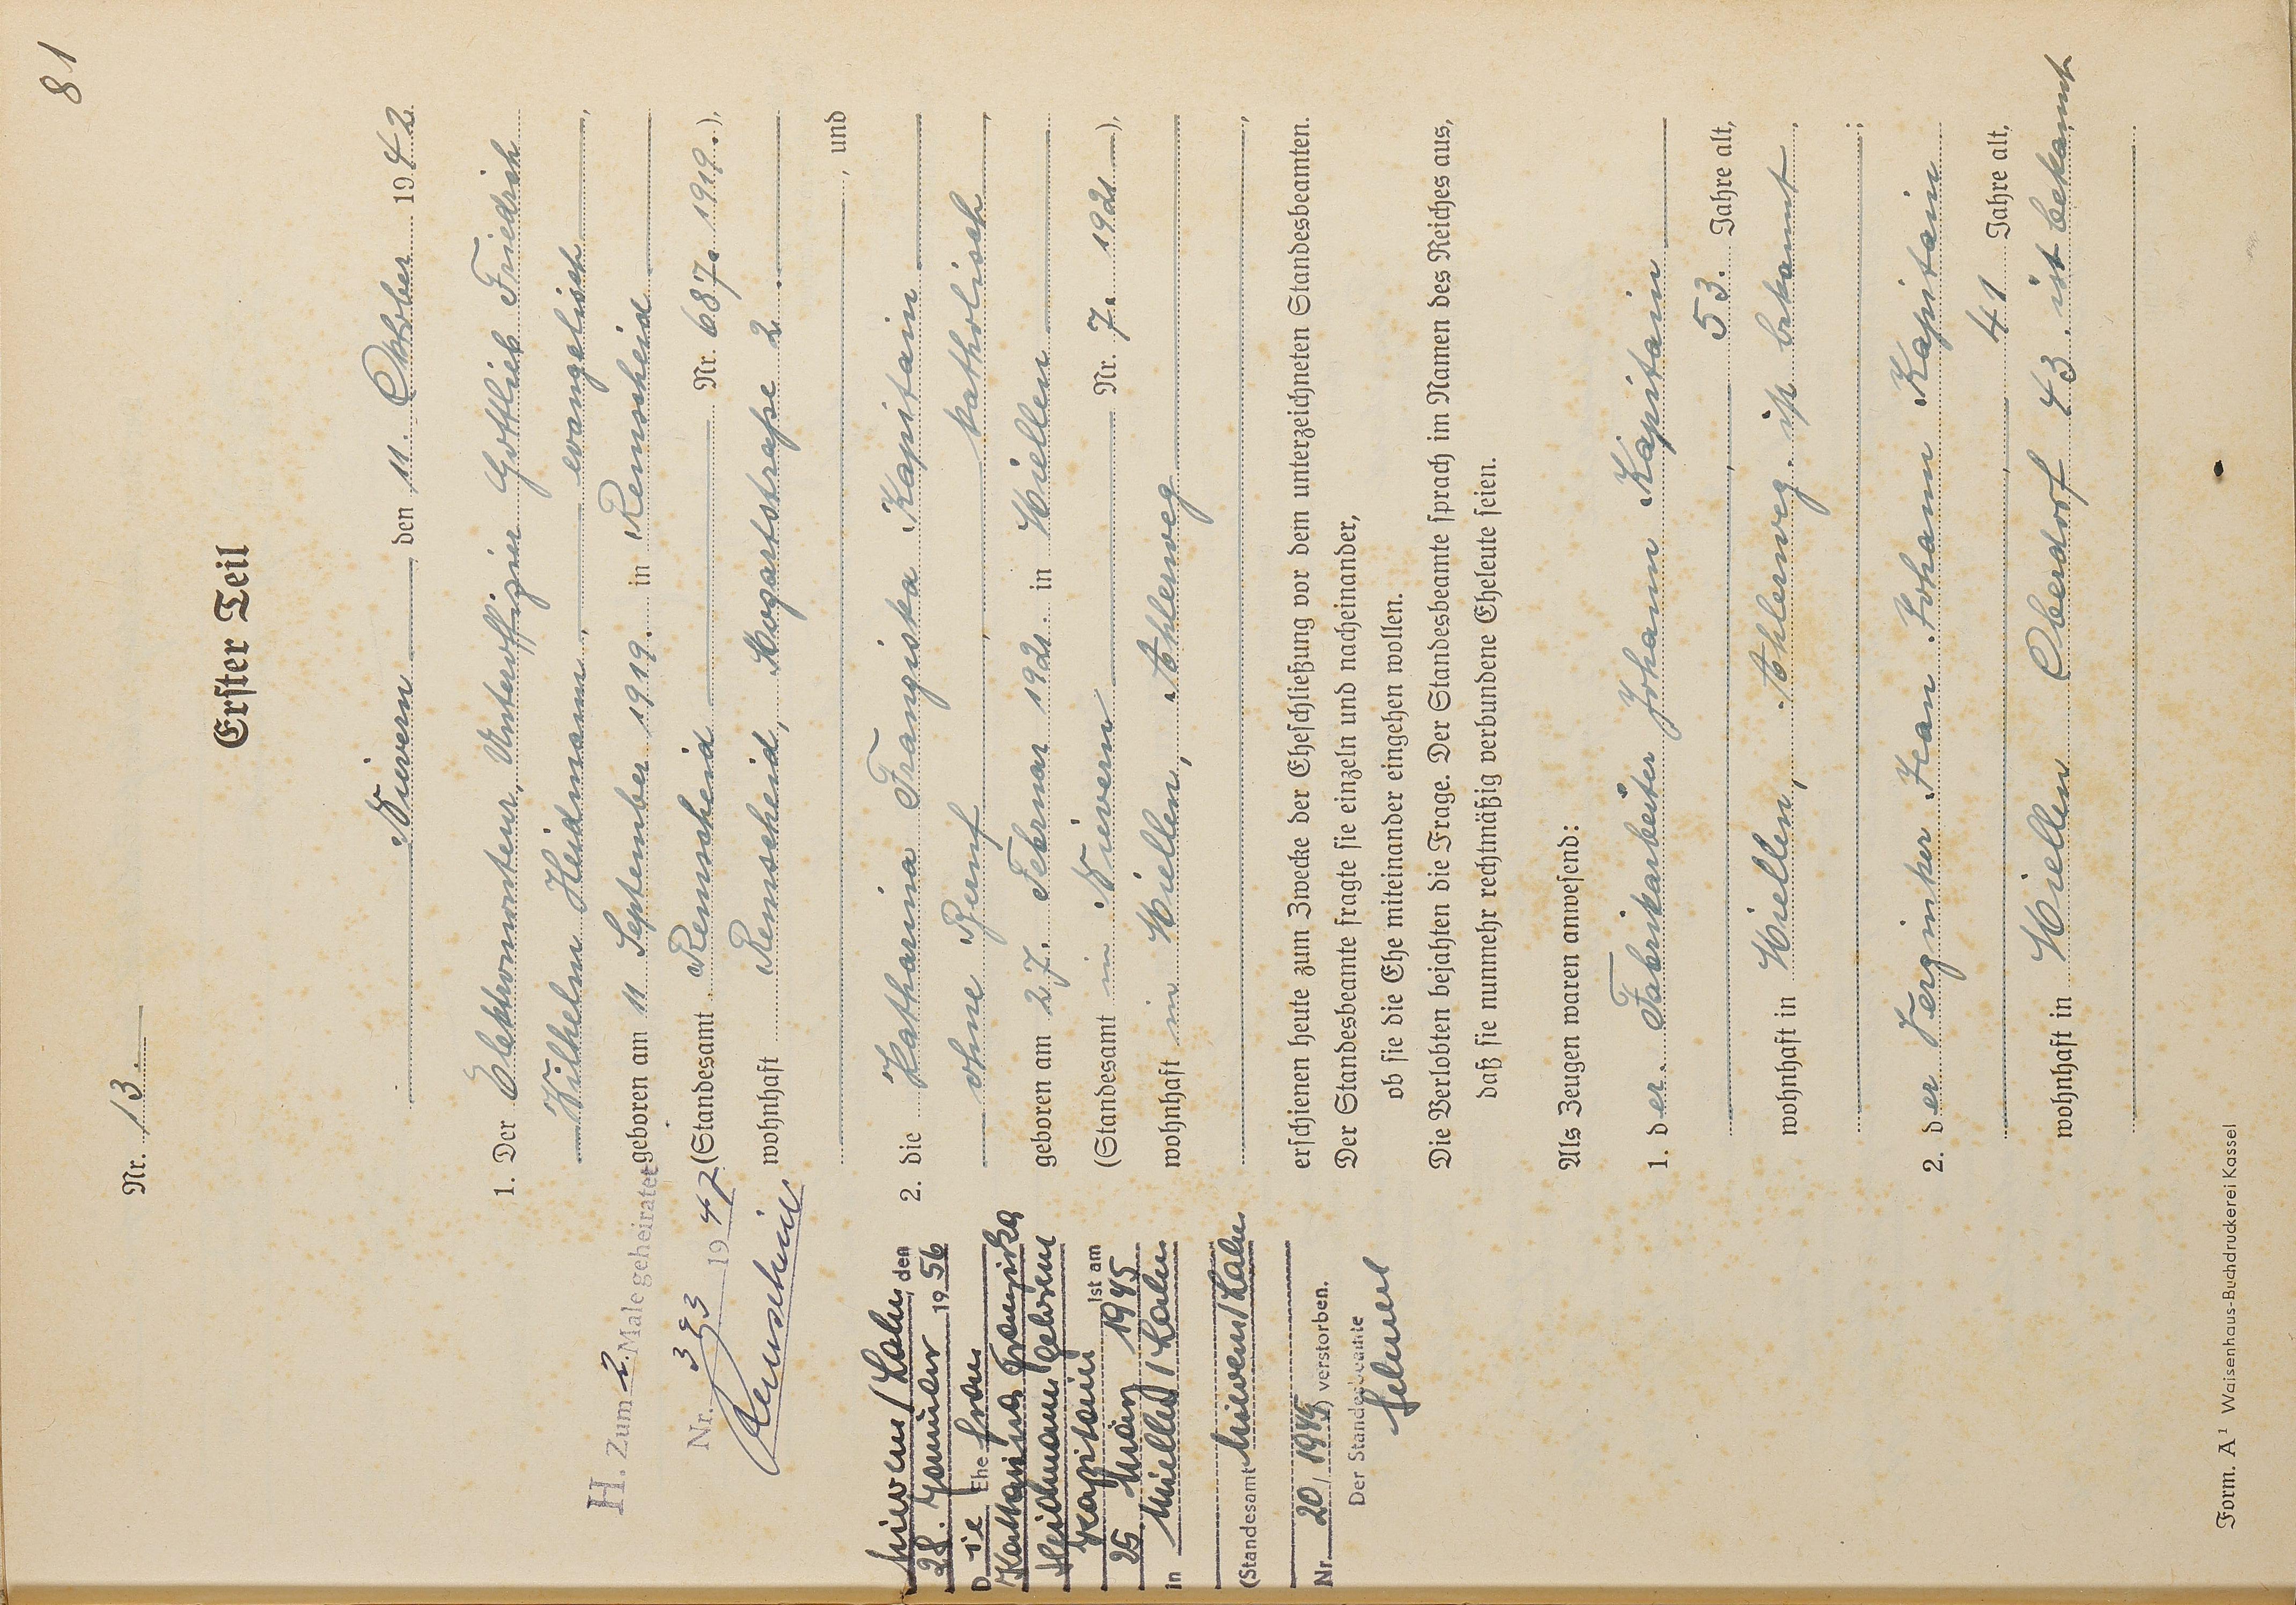 81
Nr. 13.
Erster Teil
Nievern, den 11. Oktober 1942
1. Der Elektromonteur, Unteroffizier Gottlieb Friedrich
Wilhelm Heidmann, evangelisch,
geboren am 11 September 1919. in Remscheid
(Standesamt Remscheid Nr. 687. 1919.),
wohnhaft Remscheid, Mozartstraße 2.
, und
2. die Katharina Franziska Kapitain
ohne Beruf, katholisch,
geboren am 27. Februar 1921. in Miellen
(Standesamt in Nievern Nr. 7. 1921),
wohnhaft in Miellen, Ahlerweg
,
erschienen heute zum Zwecke der Eheschließung vor dem unterzeichneten Standesbeamten.
Der Standesbeamte fragte sie einzeln und nacheinander,
ob sie die Ehe miteinander eingehen wollen.
Die Verlobten bejahten die Frage. Der Standesbeamte sprach im Namen des Reiches aus,
daß sie nunmehr rechtmäßig verbundene Eheleute seien.
Als Zeugen waren anwesend:
1. der Fabrikarbeiter Johann Kapitain
, 53. Jahre alt,
wohnhaft in Miellen, Ahlerweg. ist bekannt,
;
2. der Johann Kapitain
, 41 Jahre alt,
wohnhaft in Miellen Oberdorf 43. ist bekannt
H. Zum 2. Male geheiratet
Nr. 1947
Remscheid
Nievern/Lahn, den
28. Januar 1956
Die Ehefrau
Katharina Franziska
Heidmann geborene
Kapitain ist am
25. März 1945
in Miellen/Lahn
(Standesamt Nievern/Lahn
Nr. 20/1945) verstorben.
Der Standesbeamte
Form. A¹ Waisenhaus-Buchdruckerei Kassel